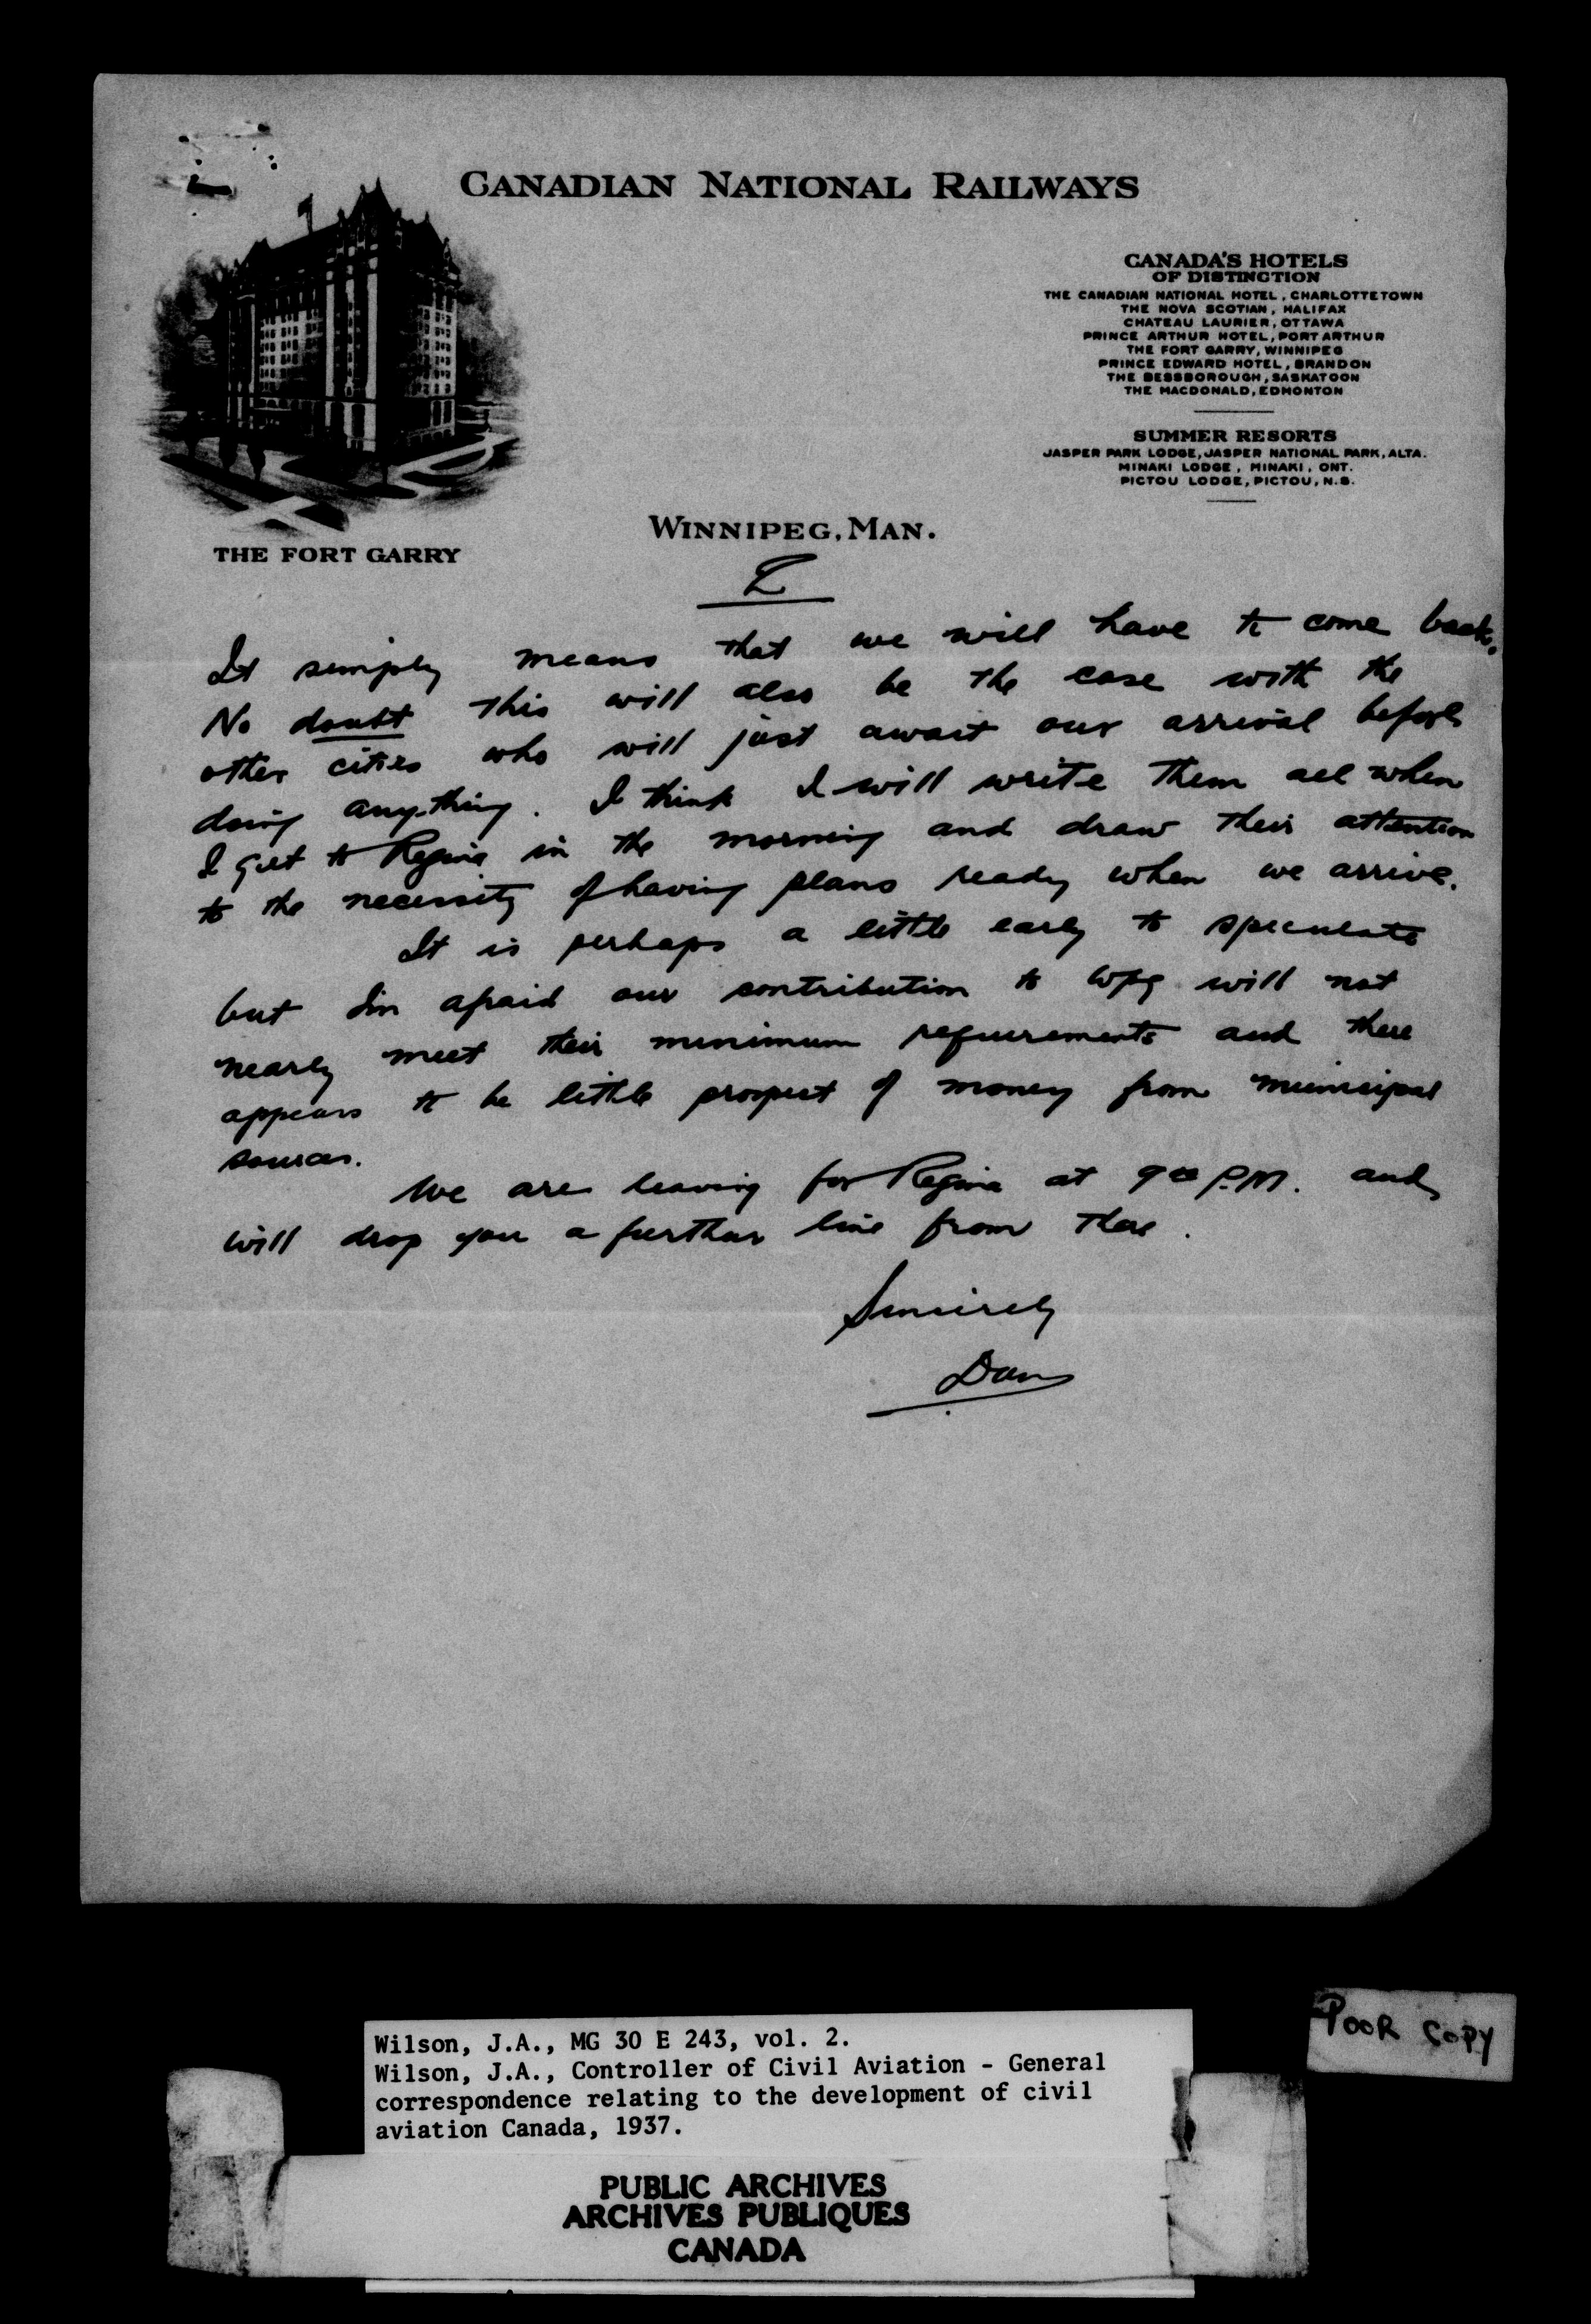 CANADIAN NATIONAL RAILWAYS
CANADA'S HOTELS
OF DISTINCTION
THE CANADIAN NATIONAL HOTEL, CHARLOTTETOWN
THE NOVA SCOTIAN, HALIFAX
CHATEAU LAURIER, OTTAWA
PRINCE ARTHUR HOTEL, PORT ARTHUR
THE FORT GARRY, WINNIPEG
PRINCE EDWARD HOTEL, BRANDON
THE BESSBOROUGH, SASKATOON
THE MACDONALD, EDMONTON
SUMMER RESORTS
JASPER PARK LODGE, JASPER NATIONAL PARK, ALTA.
MINAKI LODGE, MINAKI, ONT.
PICTOU LODGE, PICTOU, N.S.
THE FORT GARRY
WINNIPEG, MAN.
2
It simply means that we will have to come back.
No doubt this will also be the case with the
other cities who will just await our arrival before
doing anything. I think I will write them all when
I get to Regina in the morning and draw their attention
to the necessity of having plans ready when we arrive.
It is perhaps a little early to speculate
but I'm afraid our contribution to Wpg will not
nearly meet their minimum requirements and there
appears to be little prospect of money from municipal
sources.
We are leaving for Regina at 9 00 P.M. and
will drop you a further line from there.
Sincerely
Dan
POOR COPY
Wilson, J.A., MG 30 E 243, vol. 2.
Wilson, J.A., Controller of Civil Aviation - General
correspondence relating to the development of civil
aviation Canada, 1937.
PUBLIC ARCHIVES
ARCHIVES PUBLIQUES
CANADA